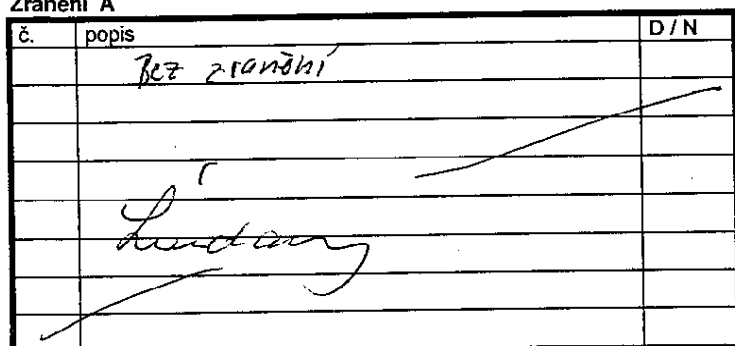 Zranění A
č. popis D / N
Bez zranění